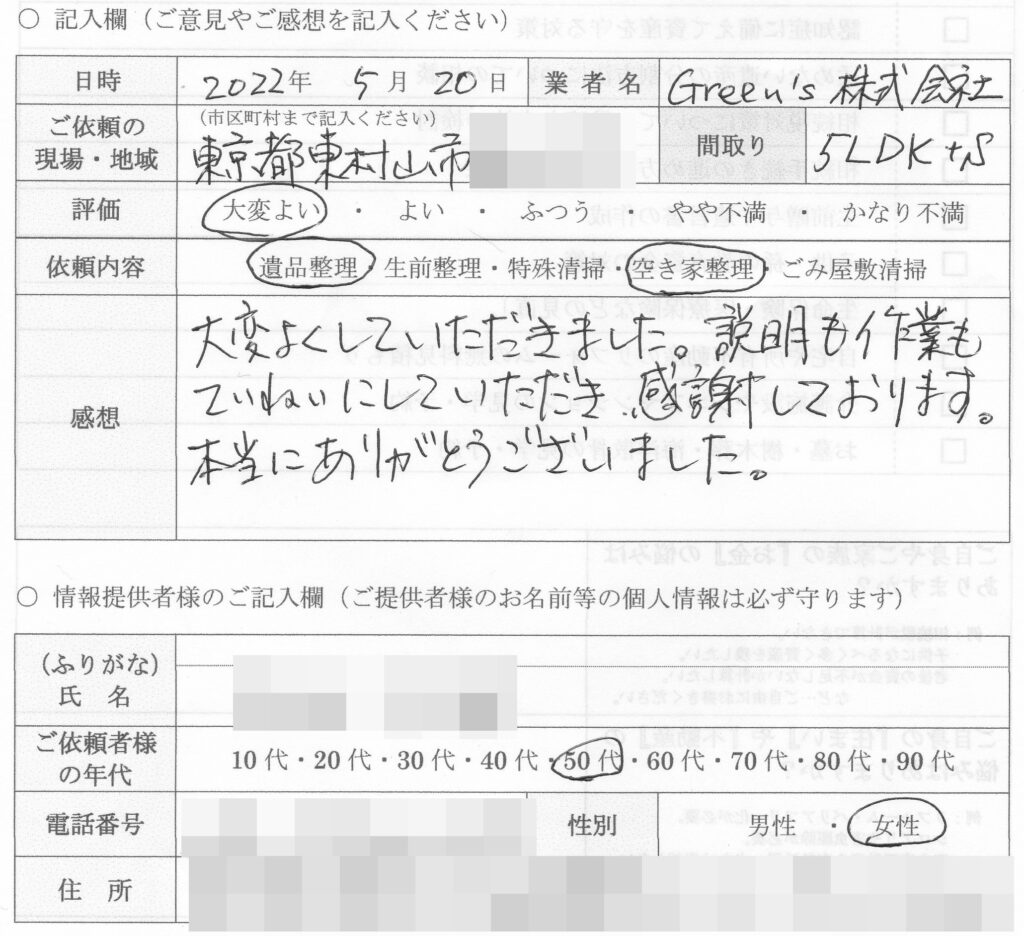 ○ 記入欄（ご意見やご感想を記入ください）
日時 2022年 5月 20日 業者名 Green's 株式会社
ご依頼の現場・地域 （市区町村まで記入ください） 東京都東村山市 間取り 5LDK+S
評価 大変よい ・ よい ・ ふつう ・ やや不満 ・ かなり不満
依頼内容 遺品整理・生前整理・特殊清掃・空き家整理・ごみ屋敷清掃
感想
大変よくしていただきました。説明も作業も
ていねいにしていただき 感謝しております。
本当にありがとうございました。
○ 情報提供者様のご記入欄（ご提供者様のお名前等の個人情報は必ず守ります）
（ふりがな）
氏 名
ご依頼者様の年代 10代・20代・30代・40代・50代・60代・70代・80代・90代
電話番号 性別 男性 ・ 女性
住 所